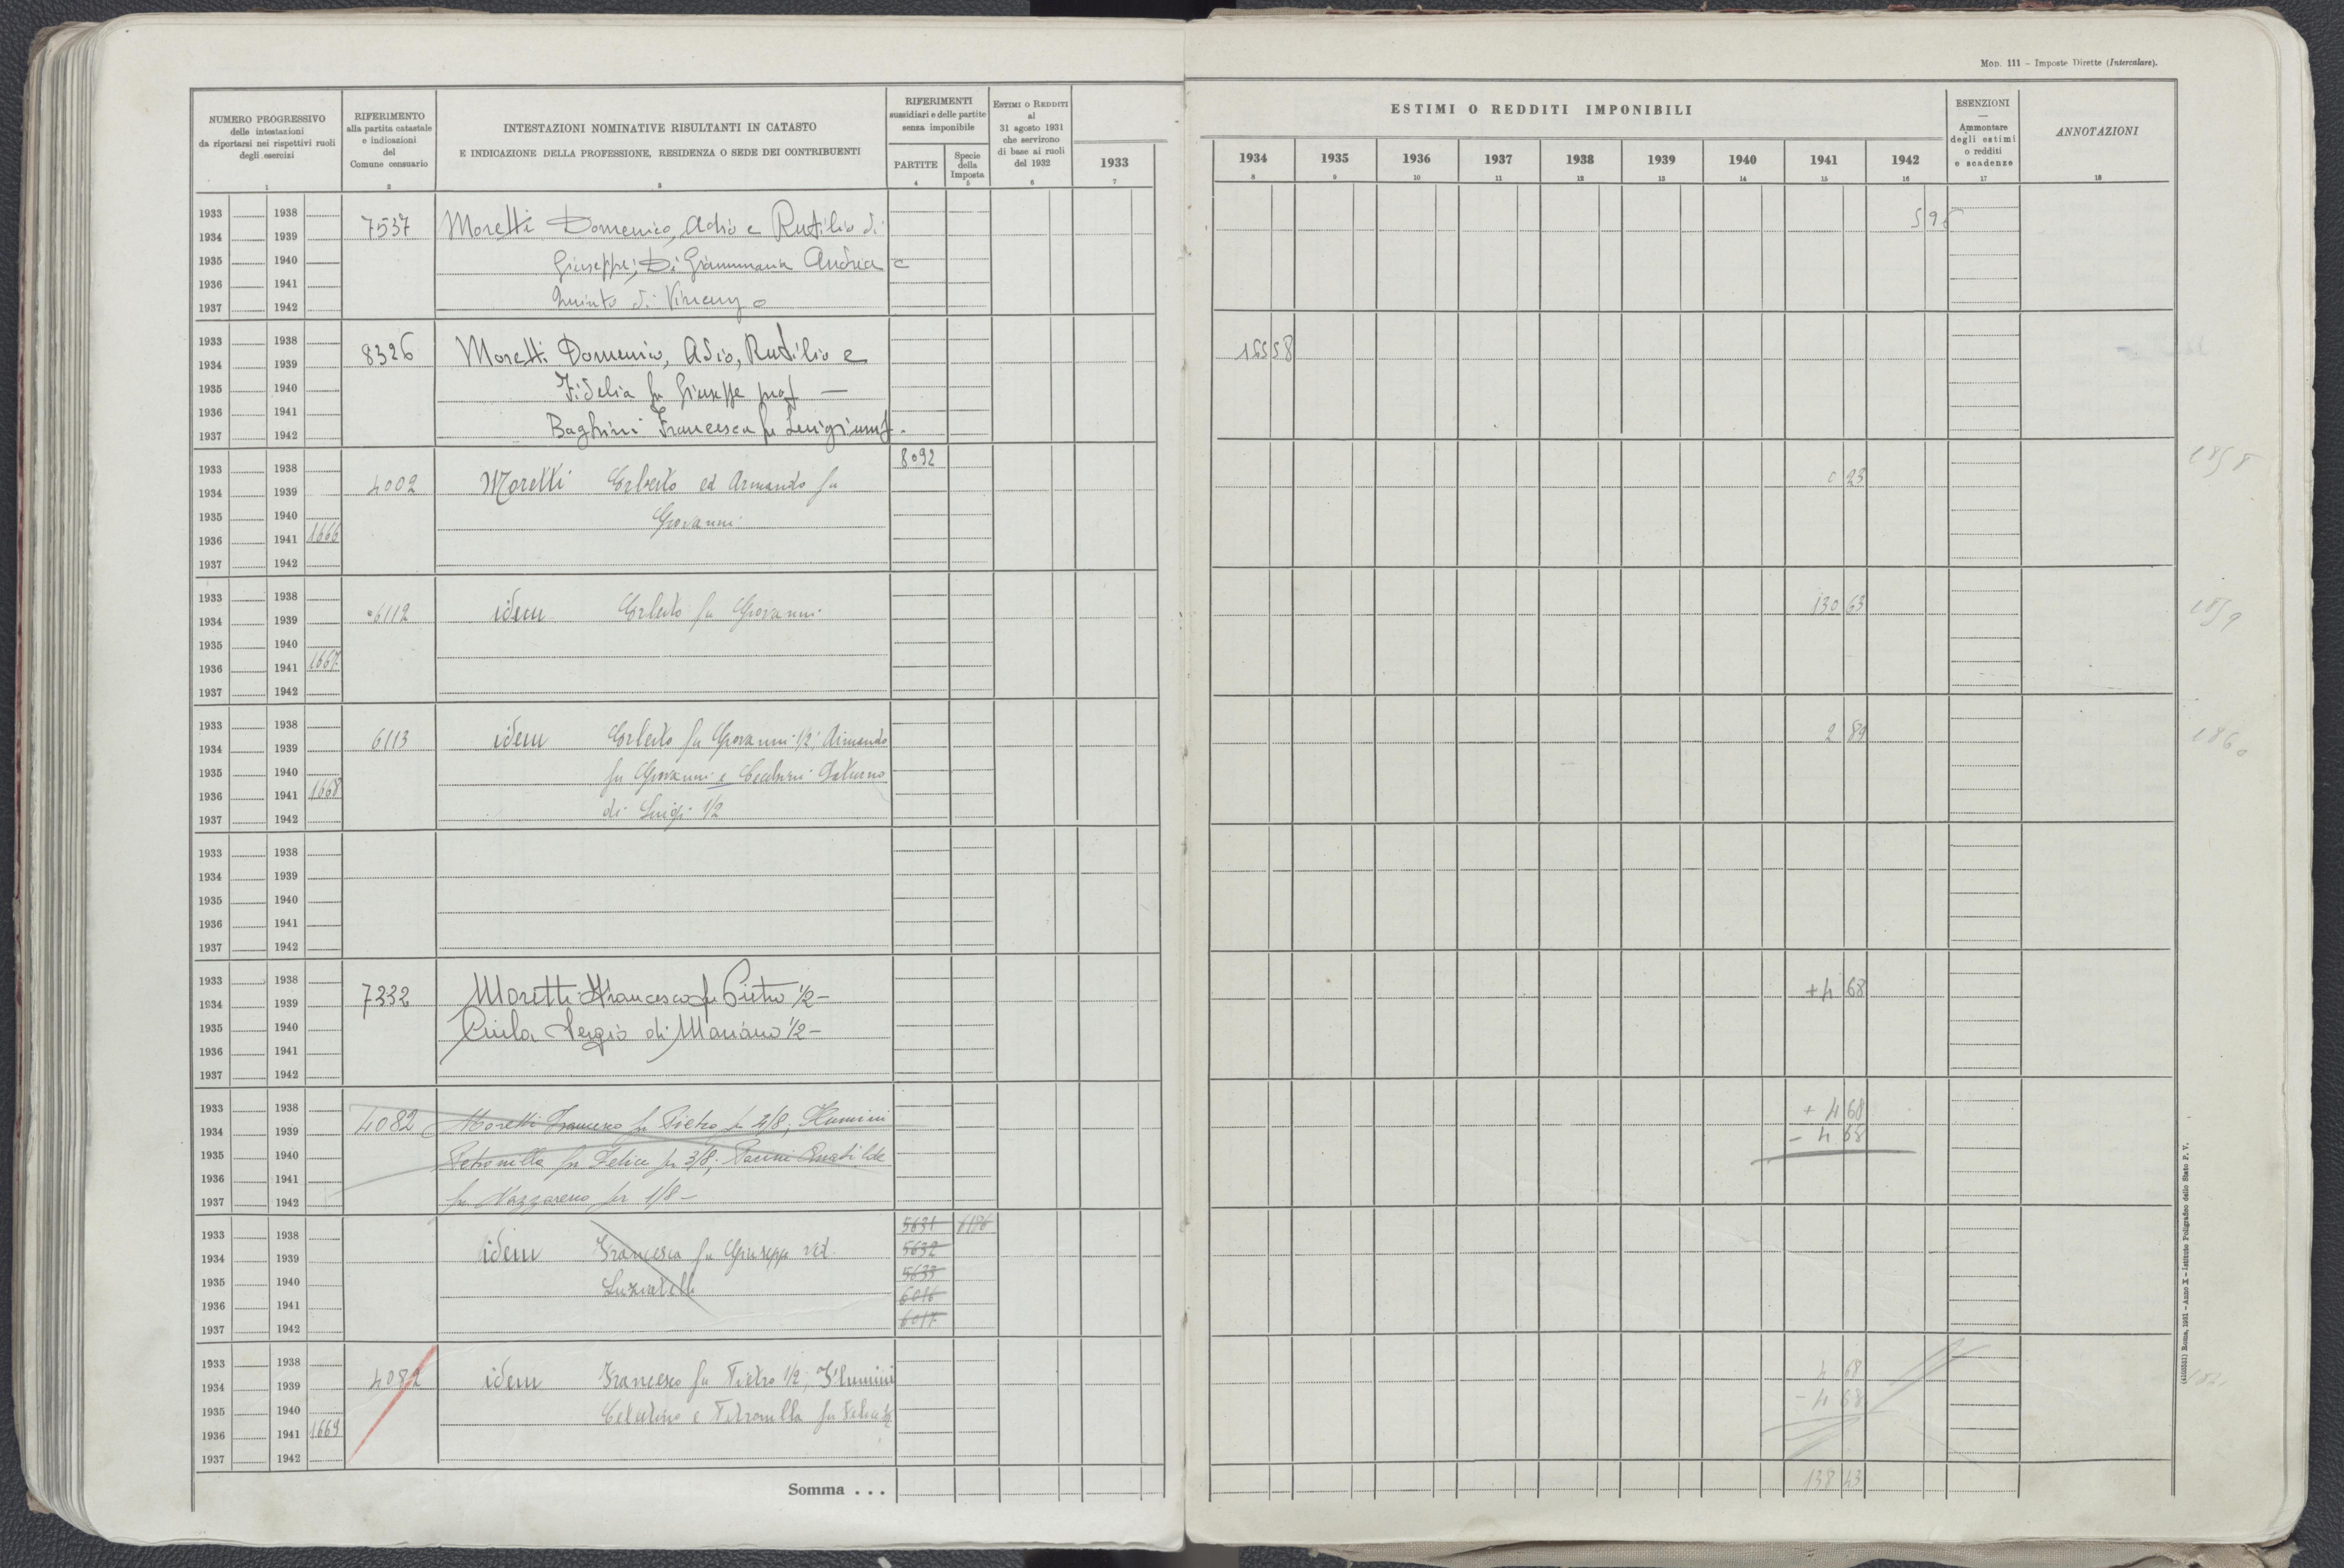 Mod. 111 – Imposte Dirette (Intercalare).
NUMERO PROGRESSIVO
delle intestazioni
da riportarsi nei rispettivi ruoli
degli esercizi
1
RIFERIMENTO
alla partita catastale
e indicazioni
del
Comune censuario
2
INTESTAZIONI NOMINATIVE RISULTANTI IN CATASTO
E INDICAZIONE DELLA PROFESSIONE, RESIDENZA O SEDE DEI CONTRIBUENTI
3
RIFERIMENTI
sussidiari e delle partite
senza imponibile
PARTITE
4
Specie
della
Imposta
5
ESTIMI O REDDITI
al
31 agosto 1931
che servirono
di base ai ruoli
del 1932
6
1933
7
ESTIMI O REDDITI IMPONIBILI
1934 1935 1936 1937 1938 1939 1940 1941 1942
8 9 10 11 12 13 14 15 16
ESENZIONI
—
Ammontare
degli estimi
o redditi
e scadenze
17
ANNOTAZIONI
18
1933 1938
1934 1939 7537 Moretti Domenico, Adio e Rutilio di
1935 1940 Giuseppe; Di Giammaria Andrea e
1936 1941 Quinto di Vincenzo
1937 1942
1933 1938
1934 1939 8326 Moretti Domenico, Adio, Rutilio e 165 58
1935 1940 Fidelia fu Giuseppe prop —
1936 1941 Baghini Francesca fu Luigi usuf.
1937 1942
1933 1938 8092 1858
1934 1939 4002 Moretti Erberto ed Armando fu 0 23
1935 1940 Giovanni
1936 1941 1666
1937 1942
1933 1938
1934 1939 6112 idem Erberto fu Giovanni 130 63 1859
1935 1940
1936 1941 1667
1937 1942
1933 1938
1934 1939 6113 idem Erberto fu Giovanni 1/2; Armando 2 89 1860
1935 1940 fu Giovanni e Cecchini Saturno
1936 1941 1668
1937 1942 di Luigi 1/2
1933 1938
1934 1939
1935 1940
1936 1941
1937 1942
1933 1938
1934 1939 7332 Moretti Francesco fu Pietro 1/2 – +4 68
1935 1940 Sergio di Mariano 1/2 –
1936 1941
1937 1942
1933 1938 + 4 68
1934 1939 4082 Moretti Francesco fu Pietro per 4/8; Flumini – 4 68
1935 1940 Petronilla fu Felice per 3/8; Pacini Amatilde
1936 1941
1937 1942 fu Nazzareno per 1/8 –
1933 1938 5631 6186
1934 1939 idem Francesca fu Giuseppe ved. 5632
1935 1940 5633
1936 1941 6016
1937 1942 6017
1933 1938
1934 1939 4082 idem Francesco fu Pietro 1/2; Flumini 4 68
1935 1940 Celestino e Petronilla fu Felice 1/2 – 4 68
1936 1941 1669
1937 1942
Somma . . . 138 43
(4105531) Roma, 1931 – Anno X – Istituto Poligrafico dello Stato P. V.